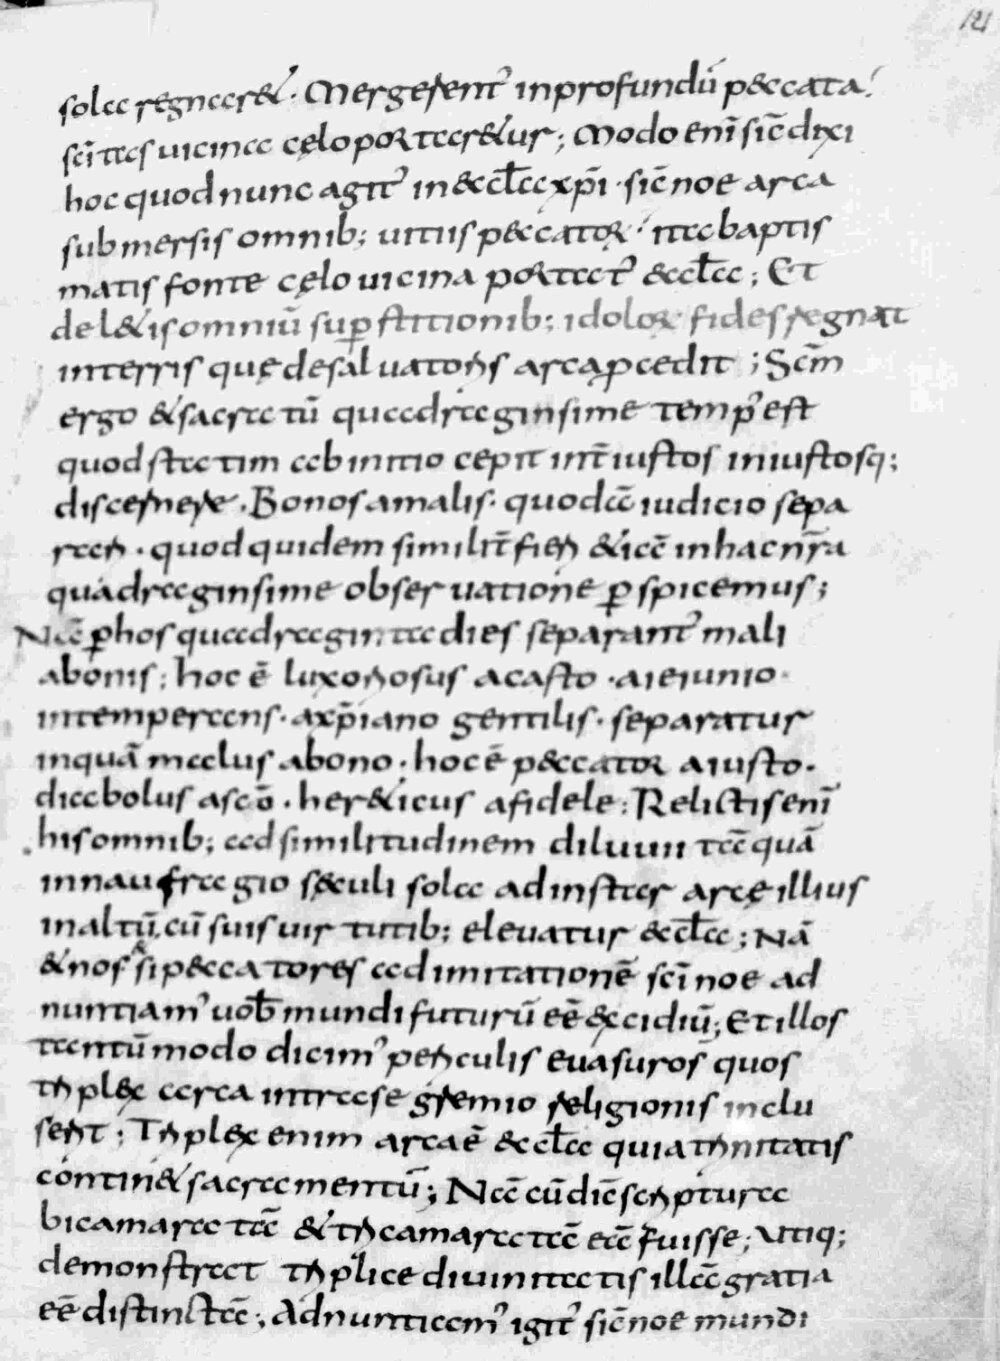 121
sola regnar&. Mergerent᾿ inprofundū peccata.᾿
scītas uicina cęlo portar&ur; Modo enī sic̄ dixi
hoc quod nunc agit᾿ in&ccl̄a xp̄i · sic̄ noe arca
submersis omnib; uitiis peccatoꝝ · ita baptis
matis fonte cęlo uicina portat᾿ &ccl̄a; Et
del&is omniū suꝑstitionib; idoloꝝ fides regnat
interris quę desaluatoris arca ꝓcedit; Scm̄
ergo & sacratū quadraginsime temp᾿ est
quod statim ab initio cepit int̄ iustos iniustosq;
discernere. Bonos amalis. quodā iudicio sepa
rari. quod quidem similit̄ fieri &iā in hac nr̄a
quadraginsime obseruatione ꝑspicemus;
Nā ꝑ hos quadraginta dies separant᾿ mali
abonis; hoc ē luxoriosus acasto · aieiunio ·
intemperans · axp̄iano gentilis · separatur
inquā malus abono · hoc ē peccator aiusto ·
diabolus ascō · her&icus afidele; Relictis enī
his omnib; ad similitudinem diluuii tā quā
innaufragio sęculi sola ad instar arcę illius
inaltū cū suis uirtutib; eleuatur &ccl̄a; Nā
& nos si peccatores ad imitationē scī noe ad
nuntiam᾿ uob̄ mundi futurū eē excidiū; Et illos
tantūmodo dicim᾿ periculis euasuros quos
triplex arca intra se gremio religionis inclu
serit; Triplex enim arca ē &ccl̄a quia trinitatis
contin& sacramentū; Nā cū dic̄ scriptura
bicamaratā & tricamaratā eā fuisse; Utiq;
demonstrat triplice diuinitatis illā gratia
eē distinctā; Adnuntiam᾿ igit᾿ sic̄ noe mundi